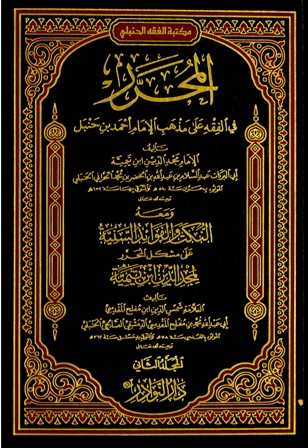 مكتبة الفقه الحنبلي
المحرر
في الفقه على مذهب الإمام أحمد بن حنبل
تأليف
الإمام مجد الدين ابن تيمية
أبي البركات عبد السلام بن عبد الله بن الخضر بن محمد الحراني الحنبلي
رحمه الله تعالى
ومعه
النكت والفوائد السنية
على مشكل المحرر
لمجد الدين ابن تيمية
تأليف
العلامة شمس الدين ابن مفلح المقدسي
أبي عبد الله محمد بن مفلح المقدسي الدمشقي الصالحي الحنبلي
رحمه الله تعالى
المجلد الثاني
دار النوادر